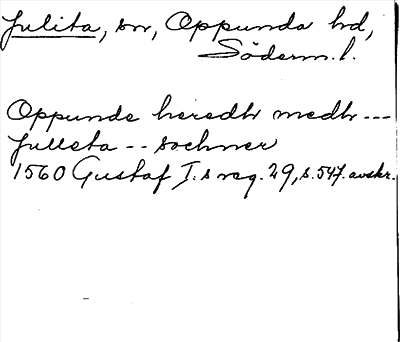 Julita, sn, Oppunda hd,
Söderm.l.
Oppunde heredtr medtr ---
Jullsta -- sochner
1560 Gustaf I.s reg. 29, s. 547. avskr.